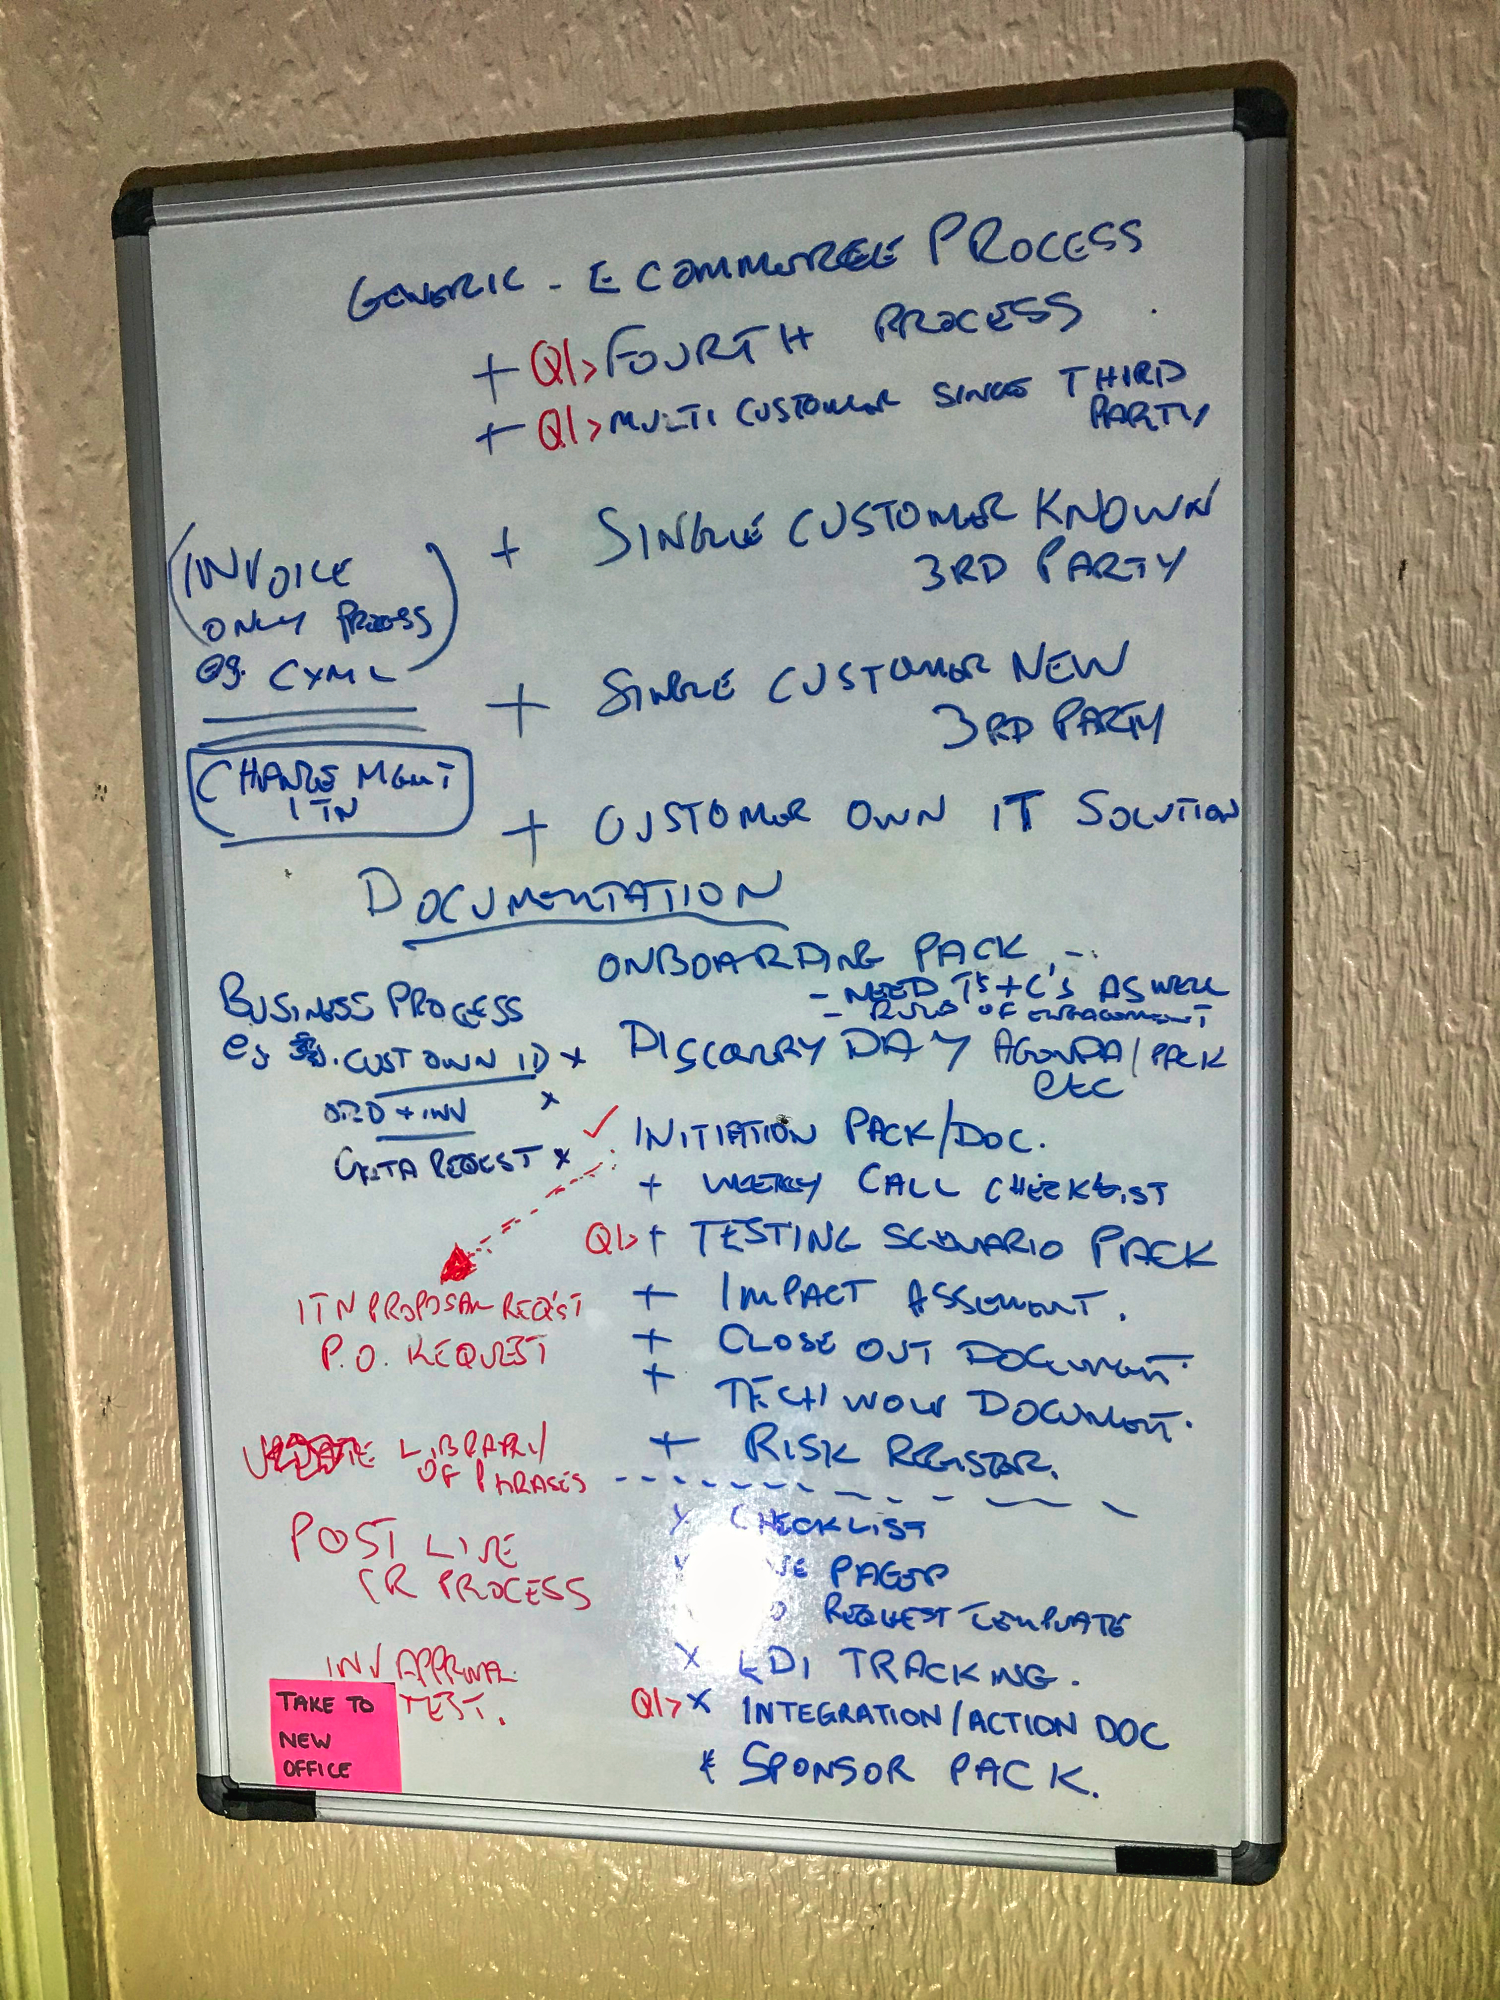 GENERIC - ECOMMERCE PROCESS
+ Q1> FOURTH PROCESS
+ Q1> MULTI CUSTOMER SINGLE THIRD
PARTY
+ SINGLE CUSTOMER KNOWN
3RD PARTY
(INVOICE
ONLY PROCESS)
eg. CXML
+ SINGLE CUSTOMER NEW
3RD PARTY
CHANGE MGMT
ITN
+ CUSTOMER OWN IT SOLUTION
DOCUMENTATION
ONBOARDING PACK -
- NEED T's+C's AS WELL
- RULES OF ENGAGEMENT
BUSINESS PROCESS
eg CUST OWN ID x
ORD + INV x
REQUEST x
DISCOVERY DAY AGENDA/PACK
etc
✓ INITIATION PACK/DOC.
+ WEEKLY CALL CHECKLIST
Q1> + TESTING SCENARIO PACK
+ IMPACT ASSEMENT.
+ CLOSE OUT DOCUMENT.
+ TECH/ DOCUMENT.
+ RISK REGISTER.
ITN PROPOSAL REQ'ST
P.O. REQUEST
UPDATE LIBRARY/
OF PHRASES
POST LIVE
CR PROCESS
INV APPROVAL
TEST.
CHECKLIST
PAGER
REQUEST TEMPLATE
x EDI TRACKING.
Q1> x INTEGRATION/ACTION DOC
* SPONSOR PACK.
TAKE TO
NEW
OFFICE